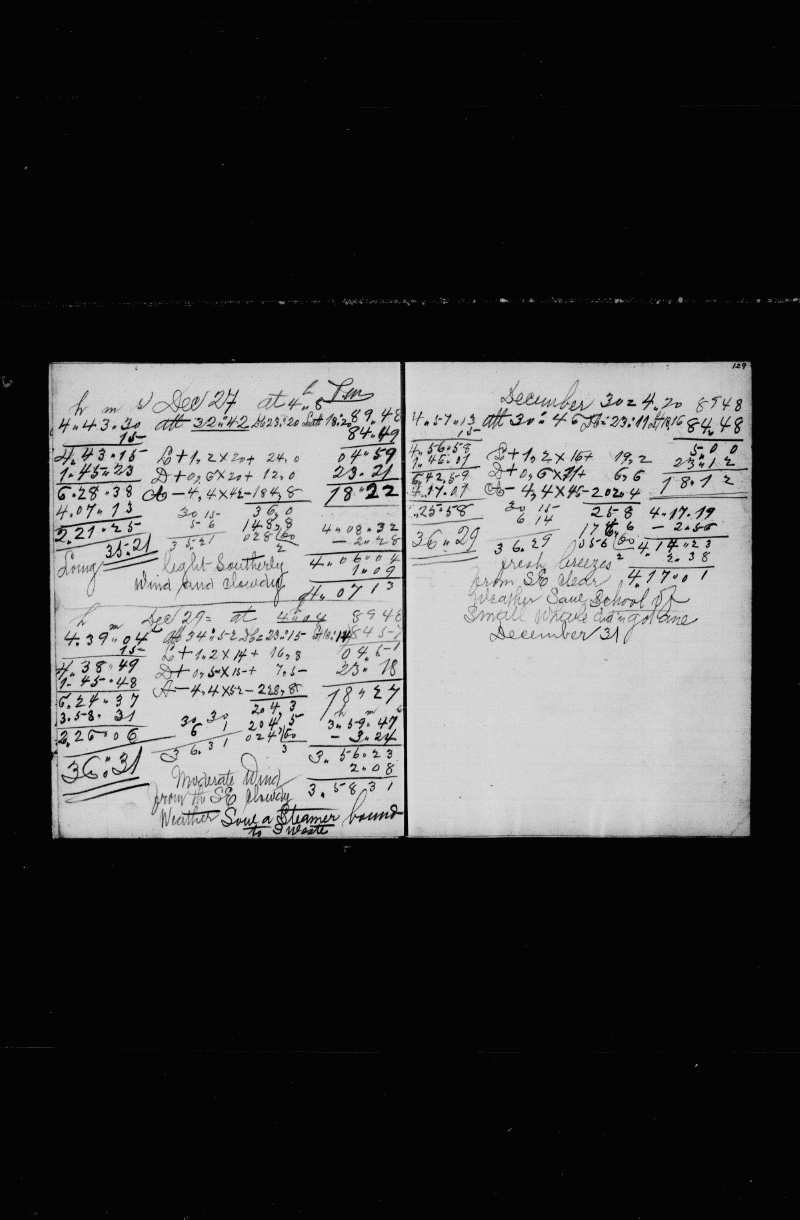 h m s Dec 27 at 4h 8 Pm
4.43.30 alt 32"42 Db 23"20 Latt 18"2 89.48
15 84.49
4.43.15 L + 1,2 x 20 + 24,0 04"59
1.45"23 D + 0,6 x 20 + 12,0 23.21
6.28"38 A - 4,4 x 42 - 184,8 18"22
4.07"13 30 15 36,0
2.21"25 5 6 148,8 4"08"32
35.21 35.21 028/60 - 2"28
2 4.06"04
Long light Southerly 1"09
Wind and Clowdy 4.07 13
h m Dec 29 = at 4h04 8948
4.39"04 alt 34"52 Db = 23"15 Lt 18"14 845
15 L + 1.2 x 14 + 16,8 0451
4.38"49 D + 0,5 x 15 + 7,5 23"18
1.45"48 A - 4,4 x 52 - 228,8 18"27
6.24"37 204,3 h m s
3.58.31 30 30 204,5 3.59.47
2.26"06 6 1 024/60 - 3"24
36"31 36.31 3 3.56.23
Moderate Wind 2"08
from the SE Clowdy 3.58.31
Weather Saw a Steamer bound
to West
129
December 30 = 4.20 8948
4.57"13 alt 30"46 Db = 23"11 Lt 18"16 84.48
15 5"00
4.56.58 L + 1,2 x 16 + 19,2 23"12
1.46.01 D + 0,6 x 11 + 6,6 18.12
6.42,59 A - 4,4 x 45 - 202"4
4.17.01 30 15 25 8 4.17.19
.25"58 6 14 17 6 6 - 2"56
36"29 36.29 056/60 4.14"23
fresh breezes 2 2"38
from SE clear 4.17"01
Weather Saw School of
Small Whale
December 31